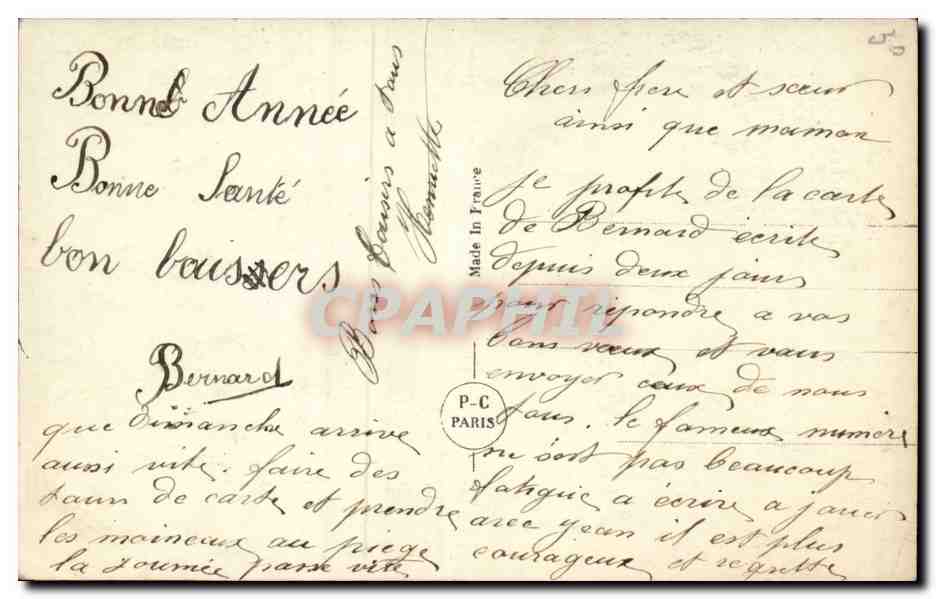 Bonne Année
Bonne Santé
bon baisers
Bernard
Bons baisers à tous
Made In France
P-C
PARIS
CPARPHIL
50
Chers frère et sœur
ainsi que maman
je profite de la carte
de Bernard écrite
depuis deux jours
pour répondre a vos
bons vœux et vous
envoyer ceux de nous
tous. le fameux
ne s'est pas beaucoup
fatigué a écrire a jouer
avec jean il est plus
courageux et regrette
que Dimanche arrive
aussi vite. faire des
tours de carte et prendre
les moineaux au piege
la journée passe vite